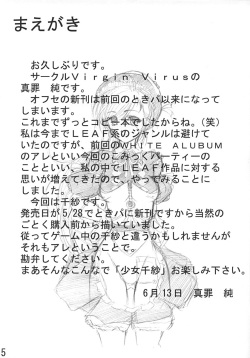 まえがき
お久しぶりです。
サークルＶｉｒｇｉｎ Ｖｉｒｕｓの
真罪 純です。
オフセの新刊は前回のときパ以来になって
しまいます。
これまでずっとコピー本でしたからね。(笑)
私は今までＬＥＡＦ系のジャンルは避けて
いたのですが、前回のＷＨＩＴＥ ＡＬＵＢＵＭ
のアレといい今回のこみっくパーティーの
ことといい、私の中でＬＥＡＦ作品に対する
思いが増えてきたので、やってみることに
しました。
今回は千紗です。
発売日が5/28でときパに新刊ですから当然の
ごとく購入前から描いていました。
従ってゲーム中の千紗と違うかもしれませんが
それもアレということで。
勘弁してください。
まあそんなこんなで「少女千紗」お楽しみ下さい。
6月13日 真罪 純
5